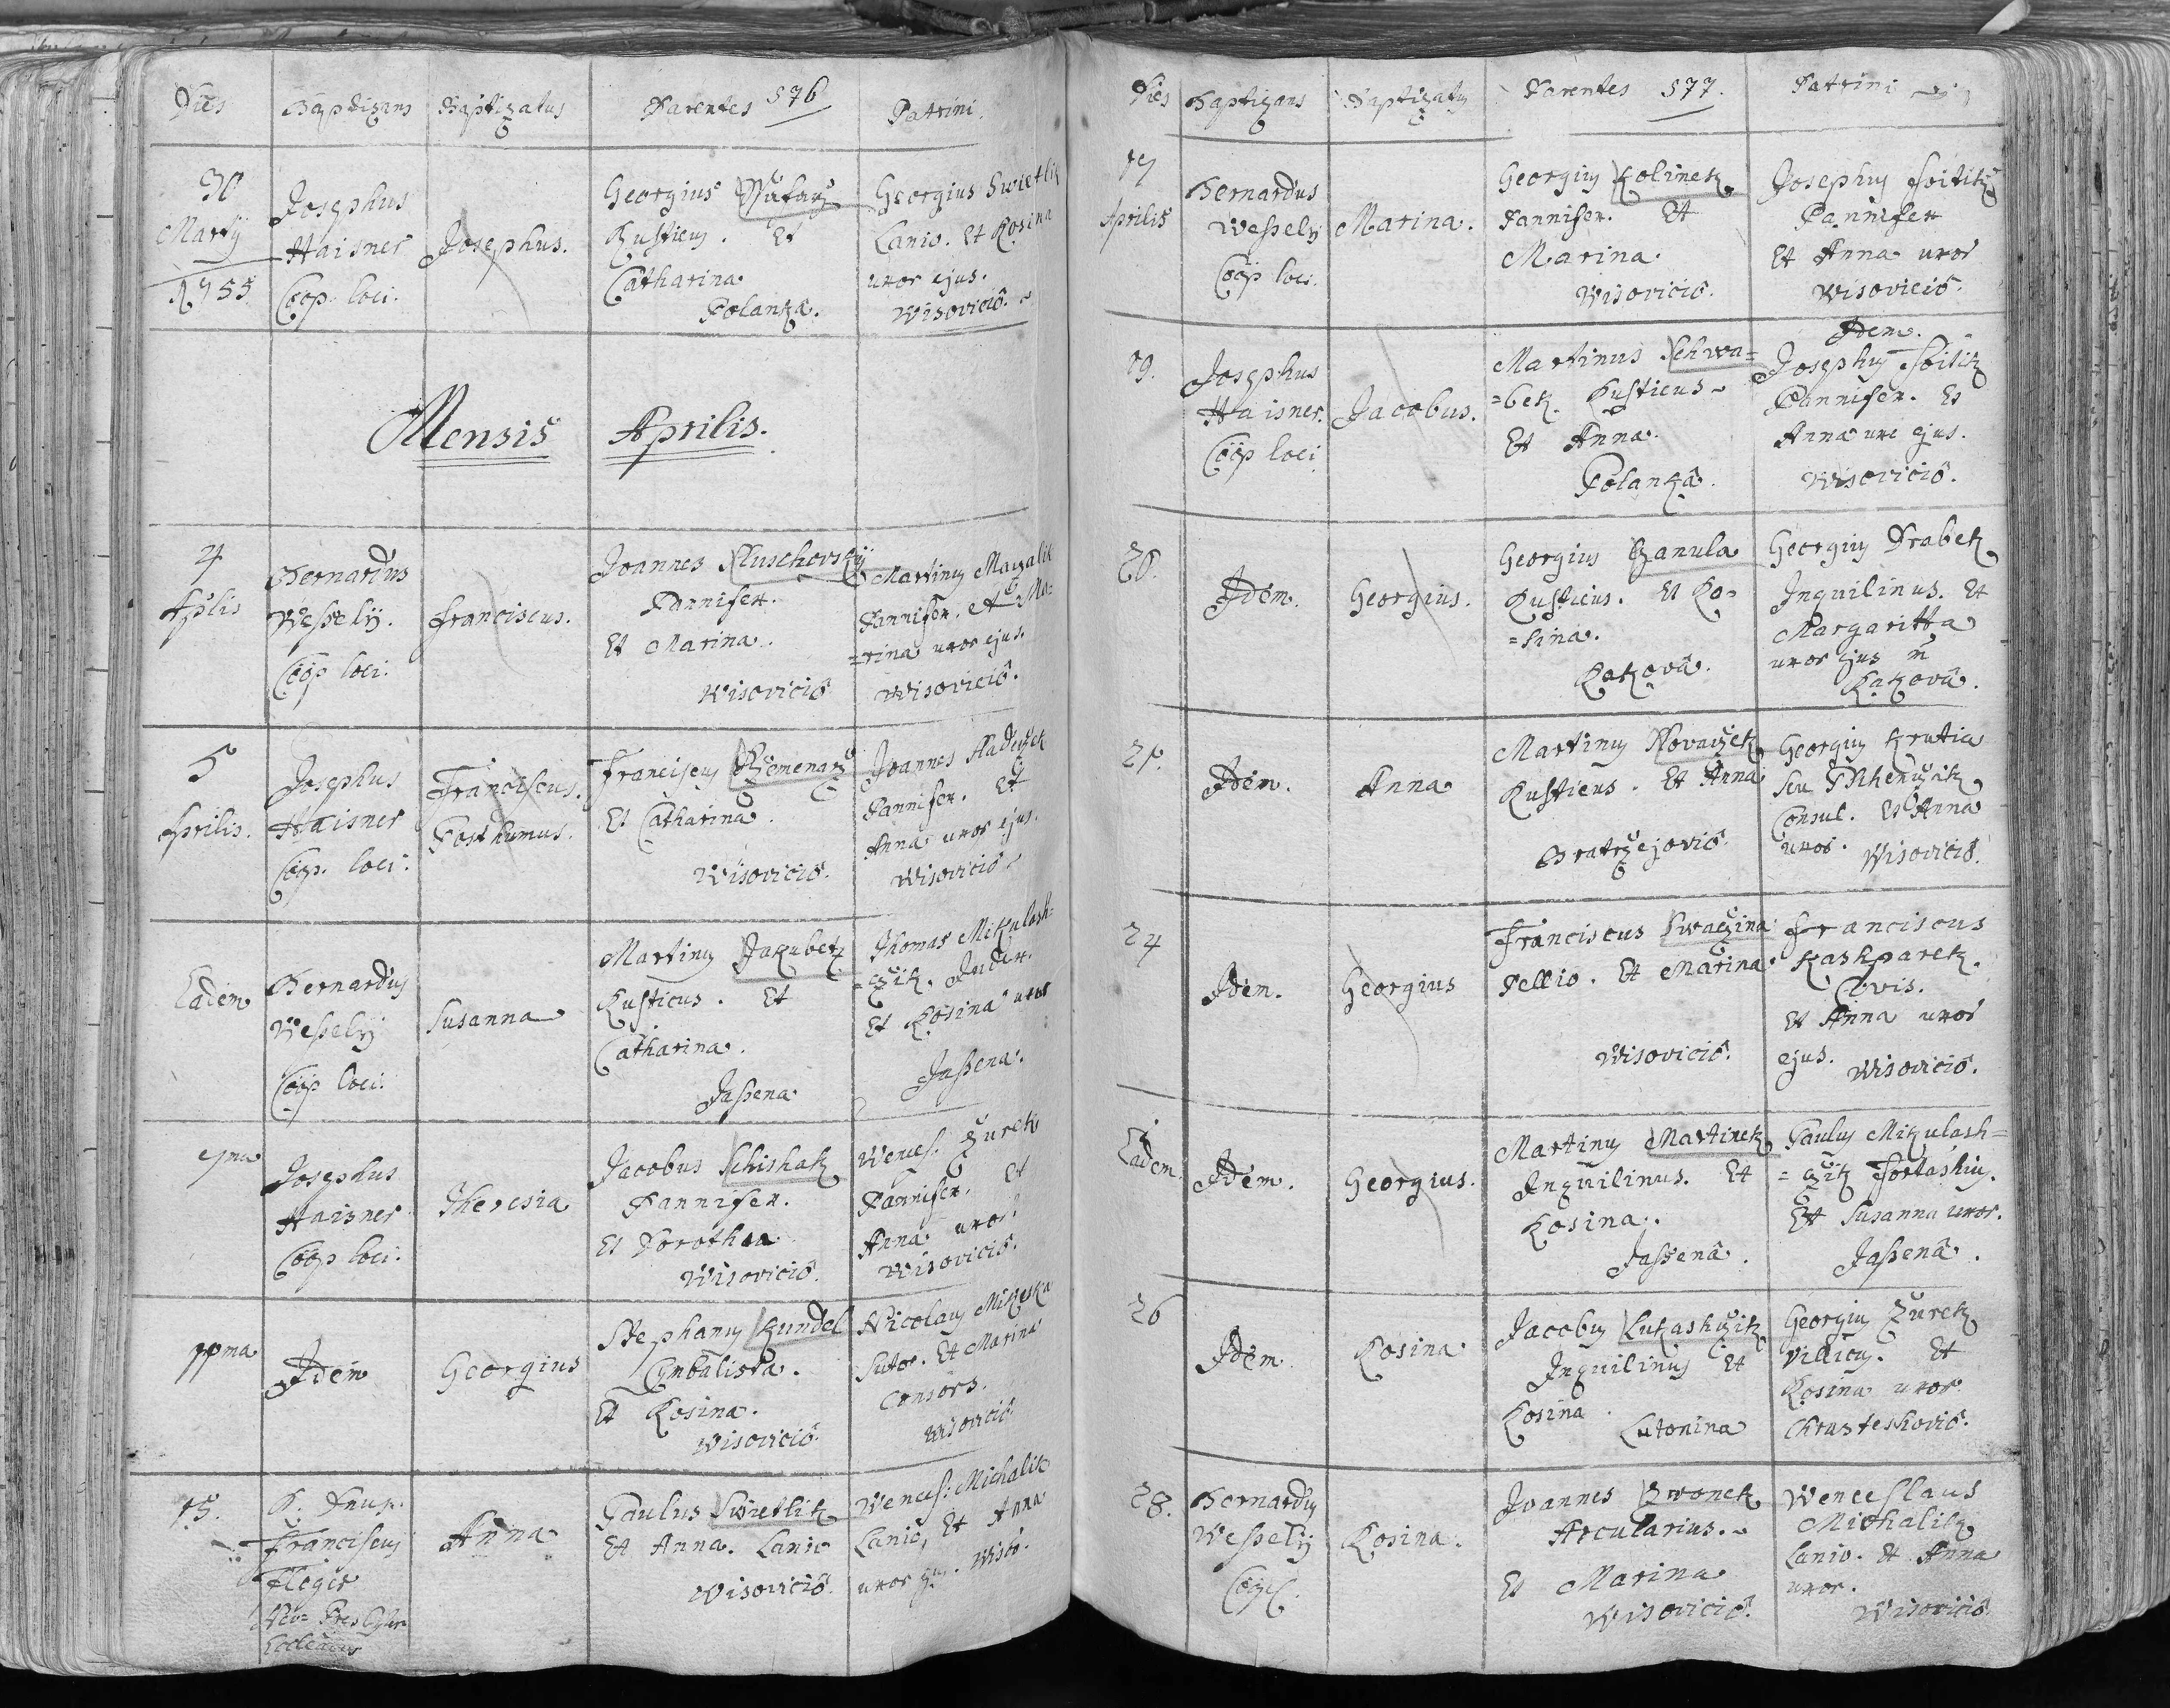 Dies Baptizans Baptizatus Parentes 576 Patrini.
30
Martij
1755
Josephus
Haisner
Coop. loci.
Josephus.
Georgius
Rusticus. Et
Catharina
Polanka.
Georgius Swietlik
Lanio. Et Rosina
uxor ejus.
Wisovicio.
Mensis Aprilis.
4
Aplis
Bernardus
Wessely.
Coop loci.
Franciscus.
Joannes Kluschovsky
Pannifex.
Et Marina.
Wisovicio
Martinus
Pannifex. Et Ma=
=rina uxor ejus.
Wisovicio.
5
Aprilis.
Josephus
Haisner
Coop. loci.
Franciscus.
Posthumus.
Franciscus Rzemenarz
Et Catharina.
Wisovicio.
Joannes
Pannifex. Et
Anna uxor ejus.
Wisovicio
Eadem
Bernardus
Wessely
Coop loci.
Susanna
Martinus Jakubek
Rusticus. Et
Catharina.
Jassena
Thomas Mikulash=
=czik. Judex.
Et Rosina uxor
Jassena.
7ma
Josephus
Haisner
Coop loci.
Theresia
Jacobus Schishak
Pannifex.
Et Dorothea
Wisovicio.
Wences: Zurek
Pannifex. Et
Anna uxor.
Wisovicio.
11ma
Idem
Georgius
Stephanus Kundel
Cymbalista.
Et Rosina.
Wisovicio.
Nicolaus Mikeska
Sutor. Et Marina
Consors.
Wisovicio
15.
Franciscus
Fleger
Anna
Paulus Swietlik
Et Anna. Lanio
Wisovicio.
Wences: Michalik
Lanio, Et Anna
uxor ejus. Wiso.
Dies Baptizans Baptizatus Parentes 577. Patrini
17
Aprilis
Bernardus
Wessely
Coop loci.
Marina.
Georgius Kolinek
Pannifex. Et
Marina.
Wisovicio.
Josephus
Pannifex
Et Anna uxor
Wisovicio.
19.
Josephus
Haisner.
Coop loci
Jacobus.
Martinus Schwa=
=bek. Rusticus
Et Anna.
Polanka.
Idem.
Josephus
Pannifex. Et
Anna uxor ejus.
Wisovicio.
20.
Idem.
Georgius.
Georgius Hanula
Rusticus. Et Ro=
=sina.
Rakova.
Georgius Drabek
Inquilinus. Et
Margaritta
uxor ejus
Rakova.
21.
Idem.
Anna
Martinus Novaczek
Rusticus. Et Anna
Bratrzejovio.
Georgius Krutia
seu
Consul. Et Anna
uxor. Wisovicio.
24
Idem.
Georgius
Franciscus Swaczina
Pellio. Et Marina.
Wisovicio.
Franciscus
Kashparek.
Civis.
Et Anna uxor
ejus. Wisovicio.
Eadem.
Idem.
Georgius.
Martinus Martinek
Inquilinus. Et
Rosina.
Jassena.
Paulus Mikulash=
=czik
Et Susanna uxor.
Jassena.
26
Idem
Rosina
Jacobus Lukashczik
Inquilinus Et
Rosina.
Lutonina
Georgius Zurek
Villicus. Et
Rosina uxor
Chrasteshovio.
28.
Bernardus
Wessely
Coop.
Rosina.
Joannes Zwonek
Arcularius.
Et Marina
Wisovicio.
Wenceslaus
Michalik
Lanio. Et Anna
uxor.
Wisovicio.